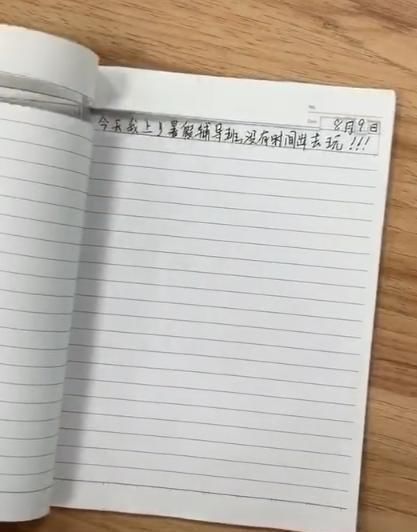 8月9日
今天我上了暑假辅导班,没有时间出去玩!!!